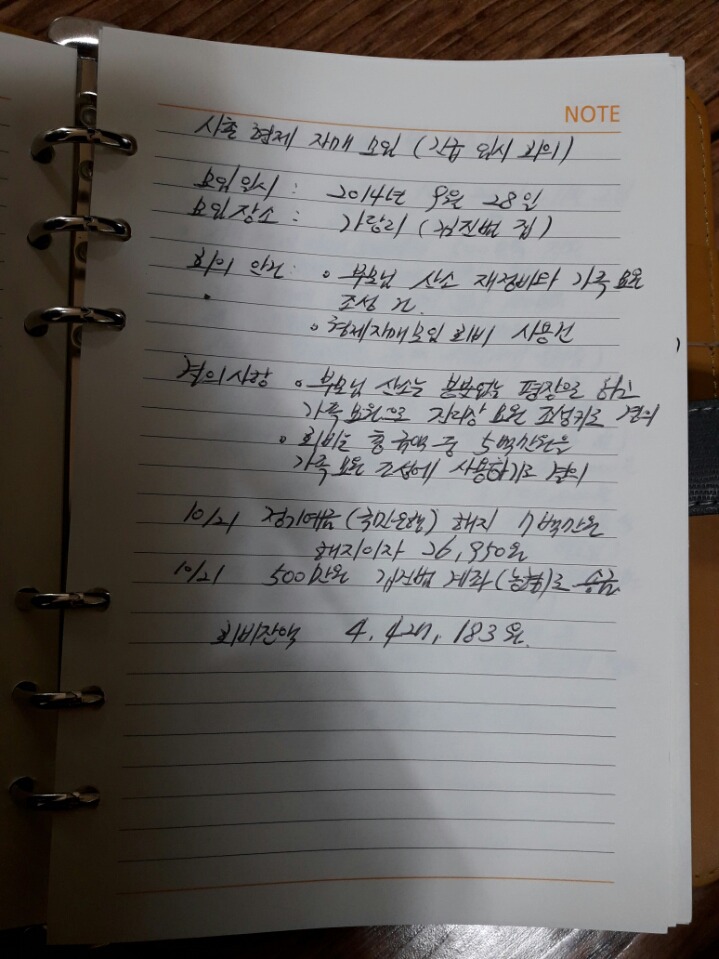 NOTE
사촌 형제 자매 모임 (긴급 임시 회의)
모임일시 : 2014년 9월 28일
모임장소 : 가랑리 (김진범 집)
회의 안건 : • 부모님 산소 재정비와 가족묘원
조성 건.
• 형제자매모임 회비 사용건
결의사항 • 부모님 산소는 봉분없는 평장으로 하고
가족묘원으로 묘원 조성키로 결의
• 회비는 총 금액 중 5백만원을
가족묘원 조성에 사용하기로 결의
10/21 정기예금(국민은행) 해지 7백만원
해지이자 26,950원
10/21 500만원 김진범 계좌(농협)로 송금
회비잔액 183원.